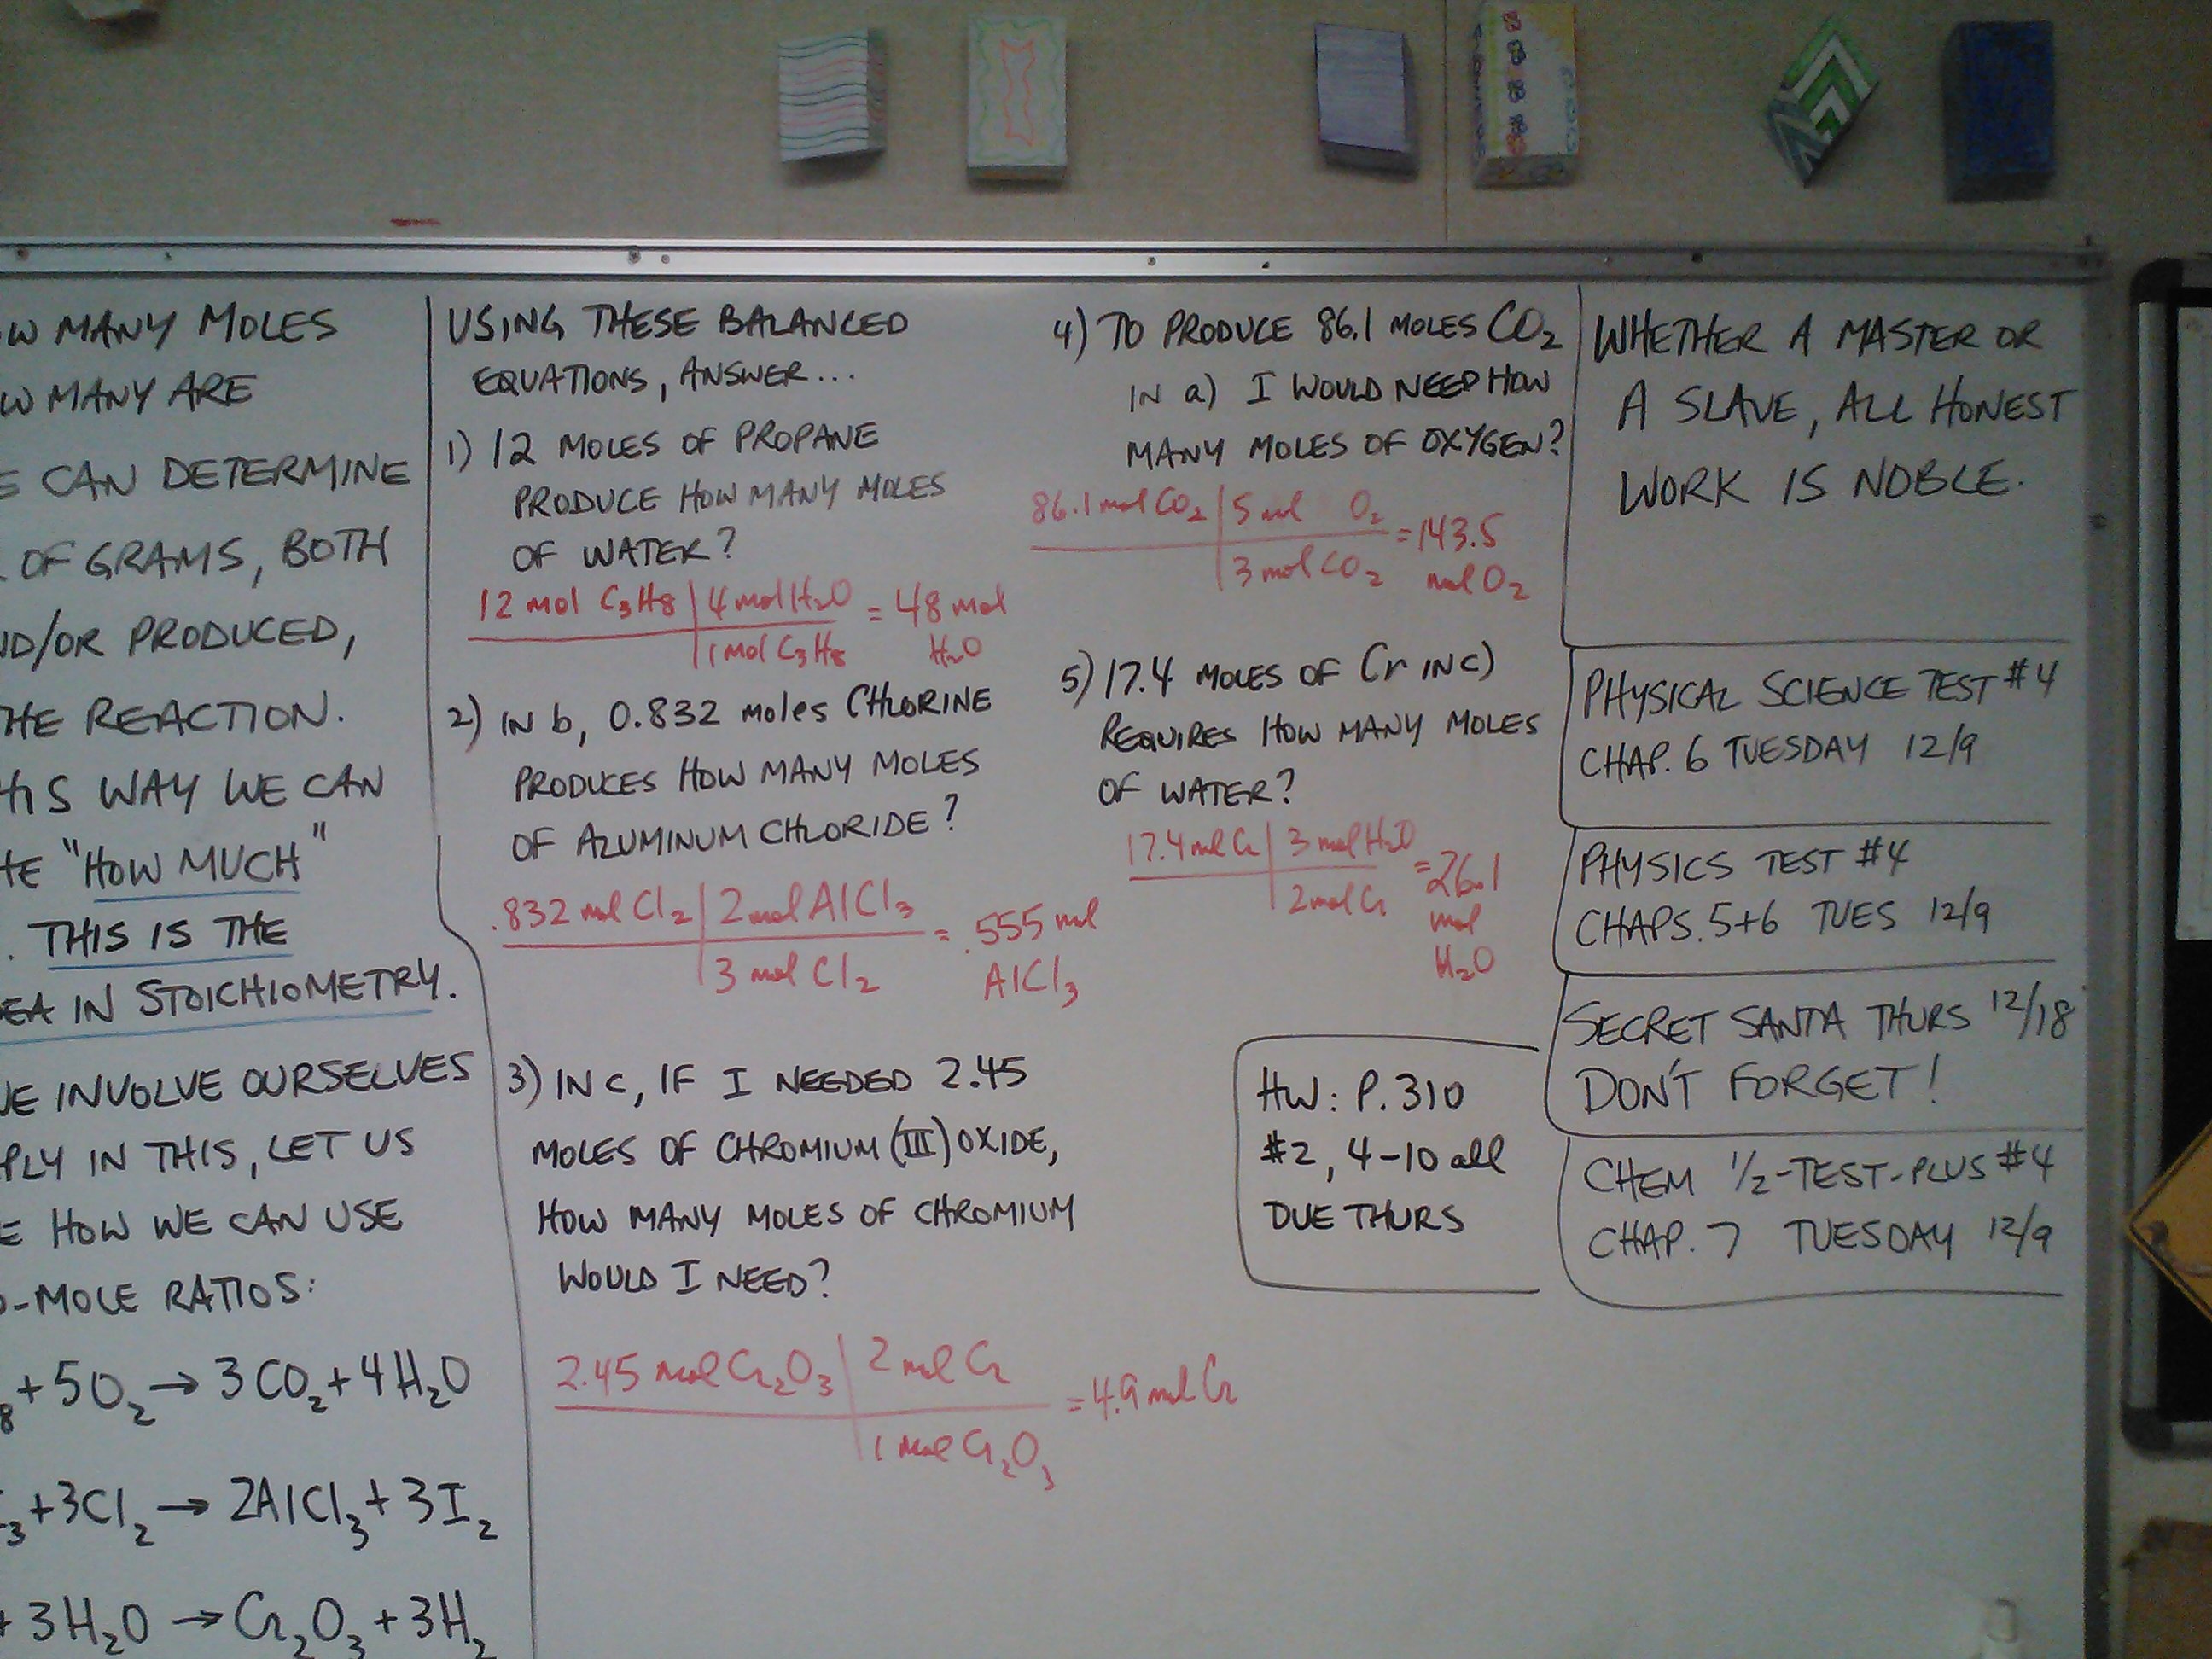 MANY MOLES
MANY ARE
CAN DETERMINE
OF GRAMS, BOTH
/OR PRODUCED,
THE REACTION.
WAY WE CAN
"HOW MUCH"
. THIS IS THE
IN STOICHIOMETRY.
INVOLVE OURSELVES
IN THIS, LET US
HOW WE CAN USE
-MOLE RATIOS:
8 + 5O2 → 3CO2 + 4H2O
3 + 3Cl2 → 2AlCl3 + 3I2
+ 3H2O → Cr2O3 + 3H2
USING THESE BALANCED
EQUATIONS, ANSWER...
1) 12 MOLES OF PROPANE
PRODUCE HOW MANY MOLES
OF WATER?
12 mol C3H8 | 4 mol H2O = 48 mol
1 mol C3H8 H2O
2) IN b, 0.832 moles CHLORINE
PRODUCES HOW MANY MOLES
OF ALUMINUM CHLORIDE?
.832 mol Cl2 | 2 mol AlCl3 = .555 mol
3 mol Cl2 AlCl3
3) IN C, IF I NEEDED 2.45
MOLES OF CHROMIUM (III) OXIDE,
HOW MANY MOLES OF CHROMIUM
WOULD I NEED?
2.45 mol Cr2O3 | 2 mol Cr = 4.9 mol Cr
1 mol Cr2O3
4) TO PRODUCE 86.1 MOLES CO2
IN a) I WOULD NEED HOW
MANY MOLES OF OXYGEN?
86.1 mol CO2 | 5 mol O2 = 143.5
3 mol CO2 mol O2
5) 17.4 MOLES OF Cr IN C)
REQUIRES HOW MANY MOLES
OF WATER?
17.4 mol Cr | 3 mol H2O = 26.1
2 mol Cr mol
H2O
HW: P. 310
#2, 4-10 all
DUE THURS
WHETHER A MASTER OR
A SLAVE, ALL HONEST
WORK IS NOBLE.
PHYSICAL SCIENCE TEST #4
CHAP. 6 TUESDAY 12/9
PHYSICS TEST #4
CHAPS. 5+6 TUES 12/9
SECRET SANTA THURS 12/18
DON'T FORGET!
CHEM 1/2-TEST-PLUS #4
CHAP. 7 TUESDAY 12/9